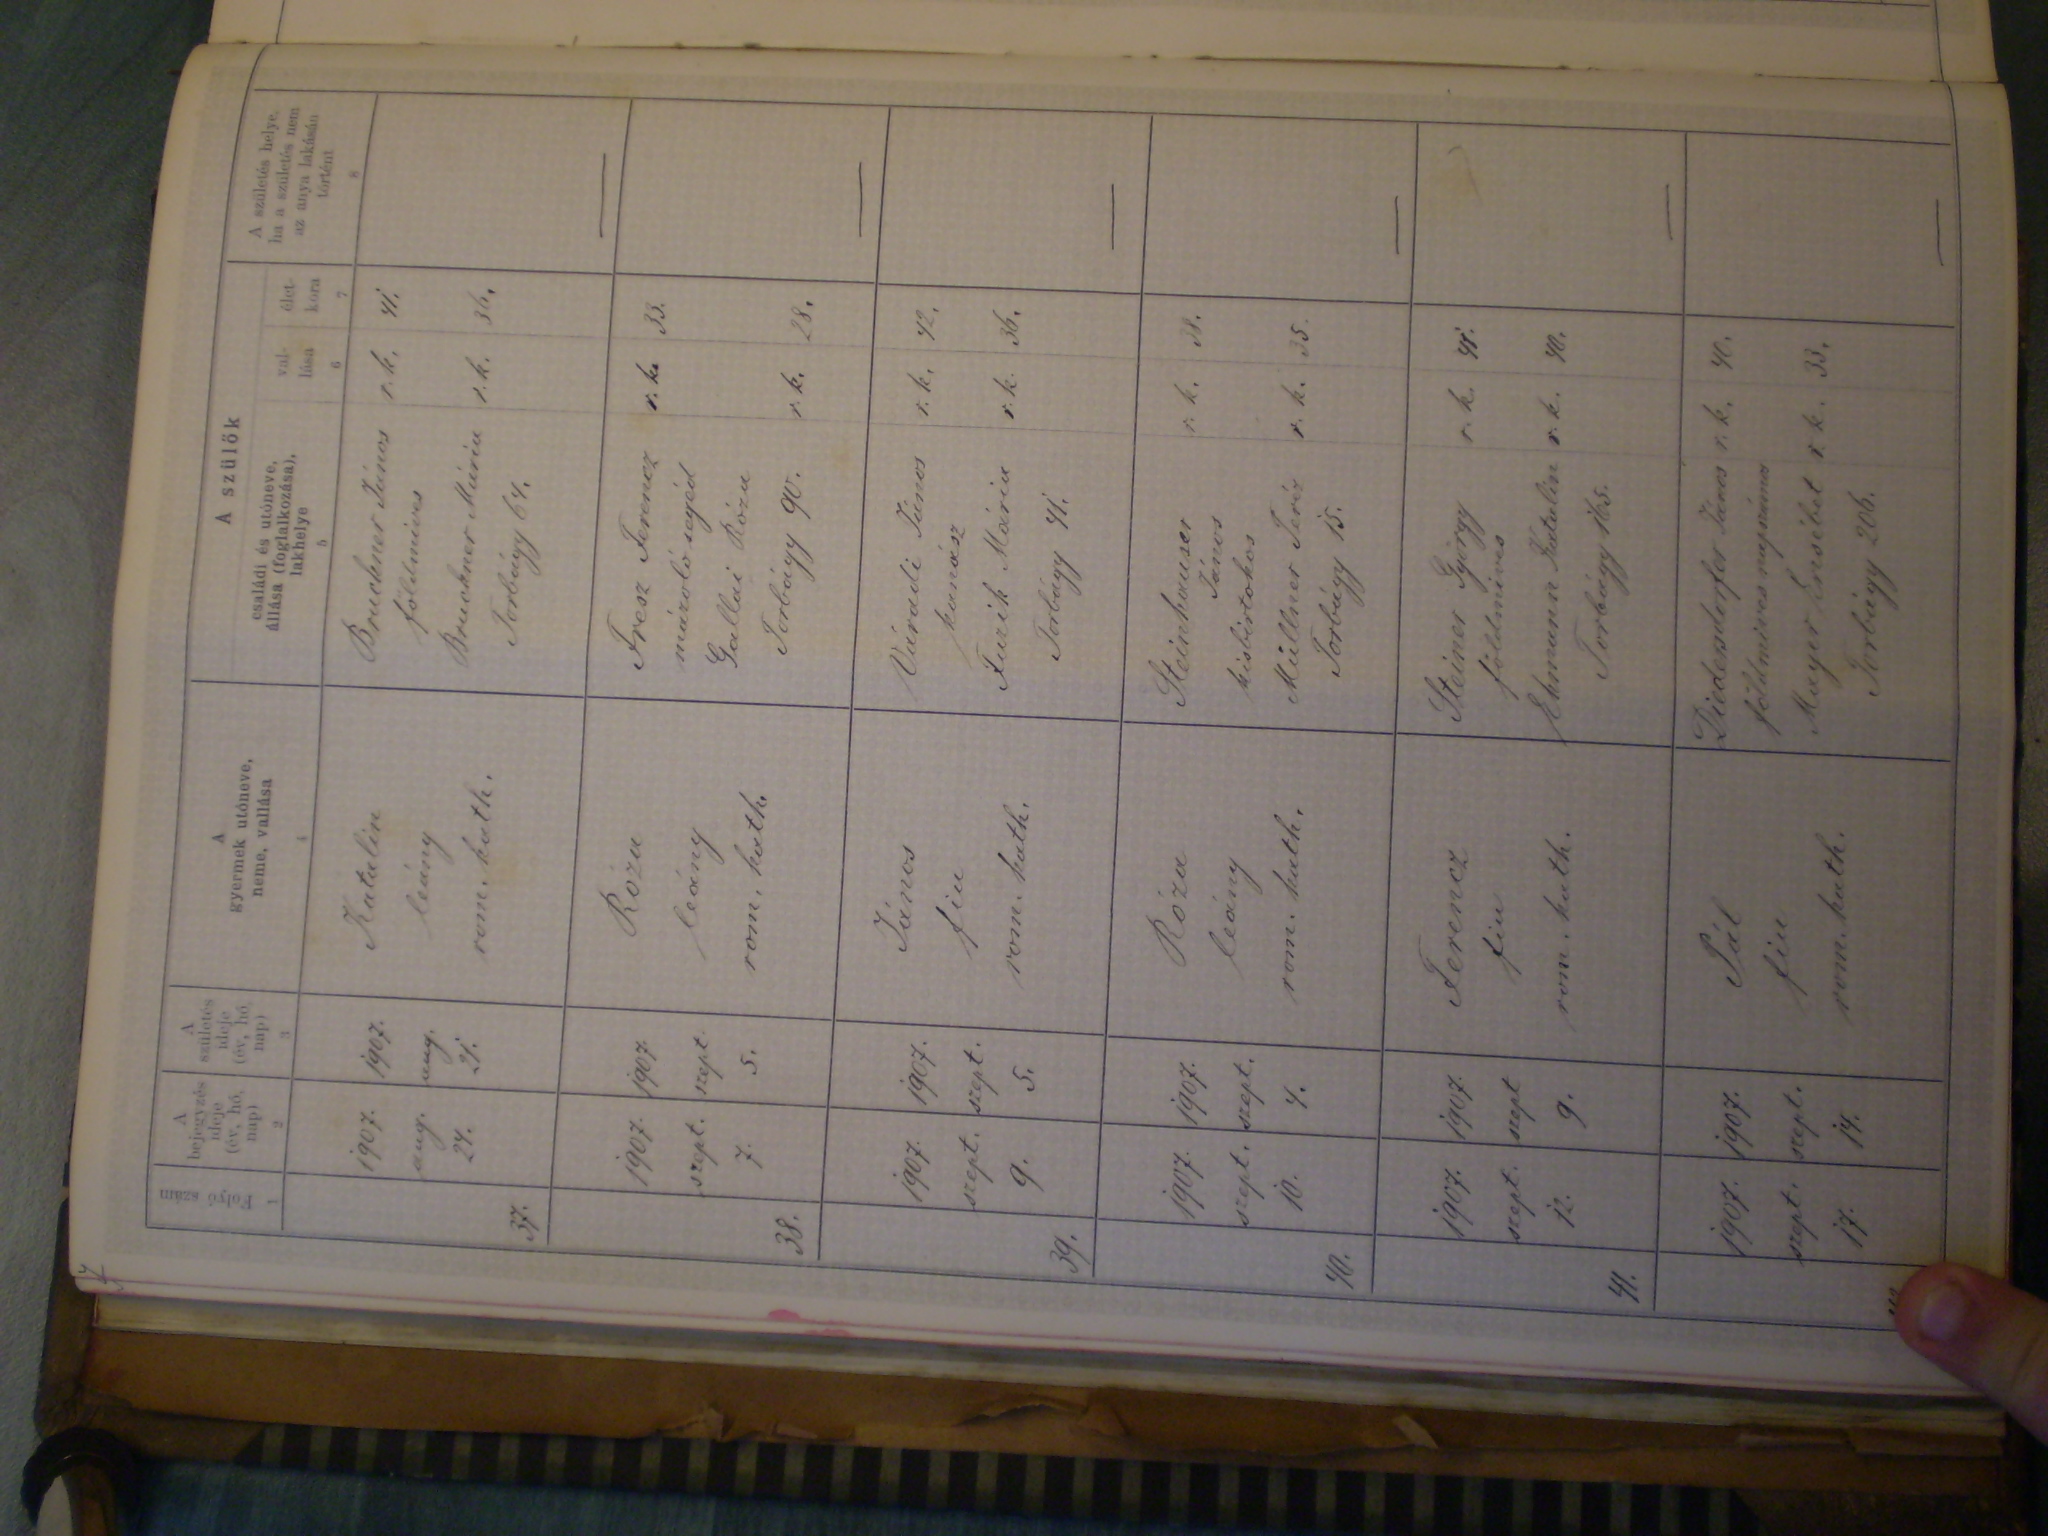 A szülők
Folyó szám
A bejegyzés ideje (év, hó, nap)
A születés ideje (év, hó, nap)
A gyermek utóneve, neme, vallása
családi és utóneve, állása (foglalkozása), lakhelye
val-lása
élet-kora
A születés helye, ha a születés nem az anya lakásán történt
1 2 3 4 5 6 7 8
37.
1907. aug. 24.
1907. aug. 21.
Katalin
leány
rom. kath.
Bruckner János r. k. 41.
földmives
Bruckner Mária r. k. 36.
Torbágy 64.
—
38.
1907. szept. 7.
1907. szept. 5.
Róza
leány
rom. kath.
Fresz Ferencz r. k. 33.
mázoló segéd
Gallai Róza r. k. 28.
Torbágy 90.
—
39.
1907. szept. 9.
1907. szept. 5.
János
fiu
rom. kath.
Váradi János r. k. 42.
kanász
Fuzik Mária r. k. 36.
Torbágy 41.
—
40.
1907. szept. 10.
1907. szept. 4.
Róza
leány
rom. kath.
Steinhauser r. k. 38.
János
kisbirtokos
Müllner Teréz r. k. 35.
Torbágy 15.
—
41.
1907. szept. 12.
1907. szept 9.
Ferencz
fiu
rom. kath.
Steiner György r. k. 41.
földmives
Ehmann Katalin r. k. 40.
Torbágy 165.
—
1907. szept. 17.
1907. szept. 14.
Pál
fiu
rom. kath.
Diedesdorfer János r. k. 40.
földmives napszámos
Mayer Erzsébet r. k. 33.
Torbágy 206.
—